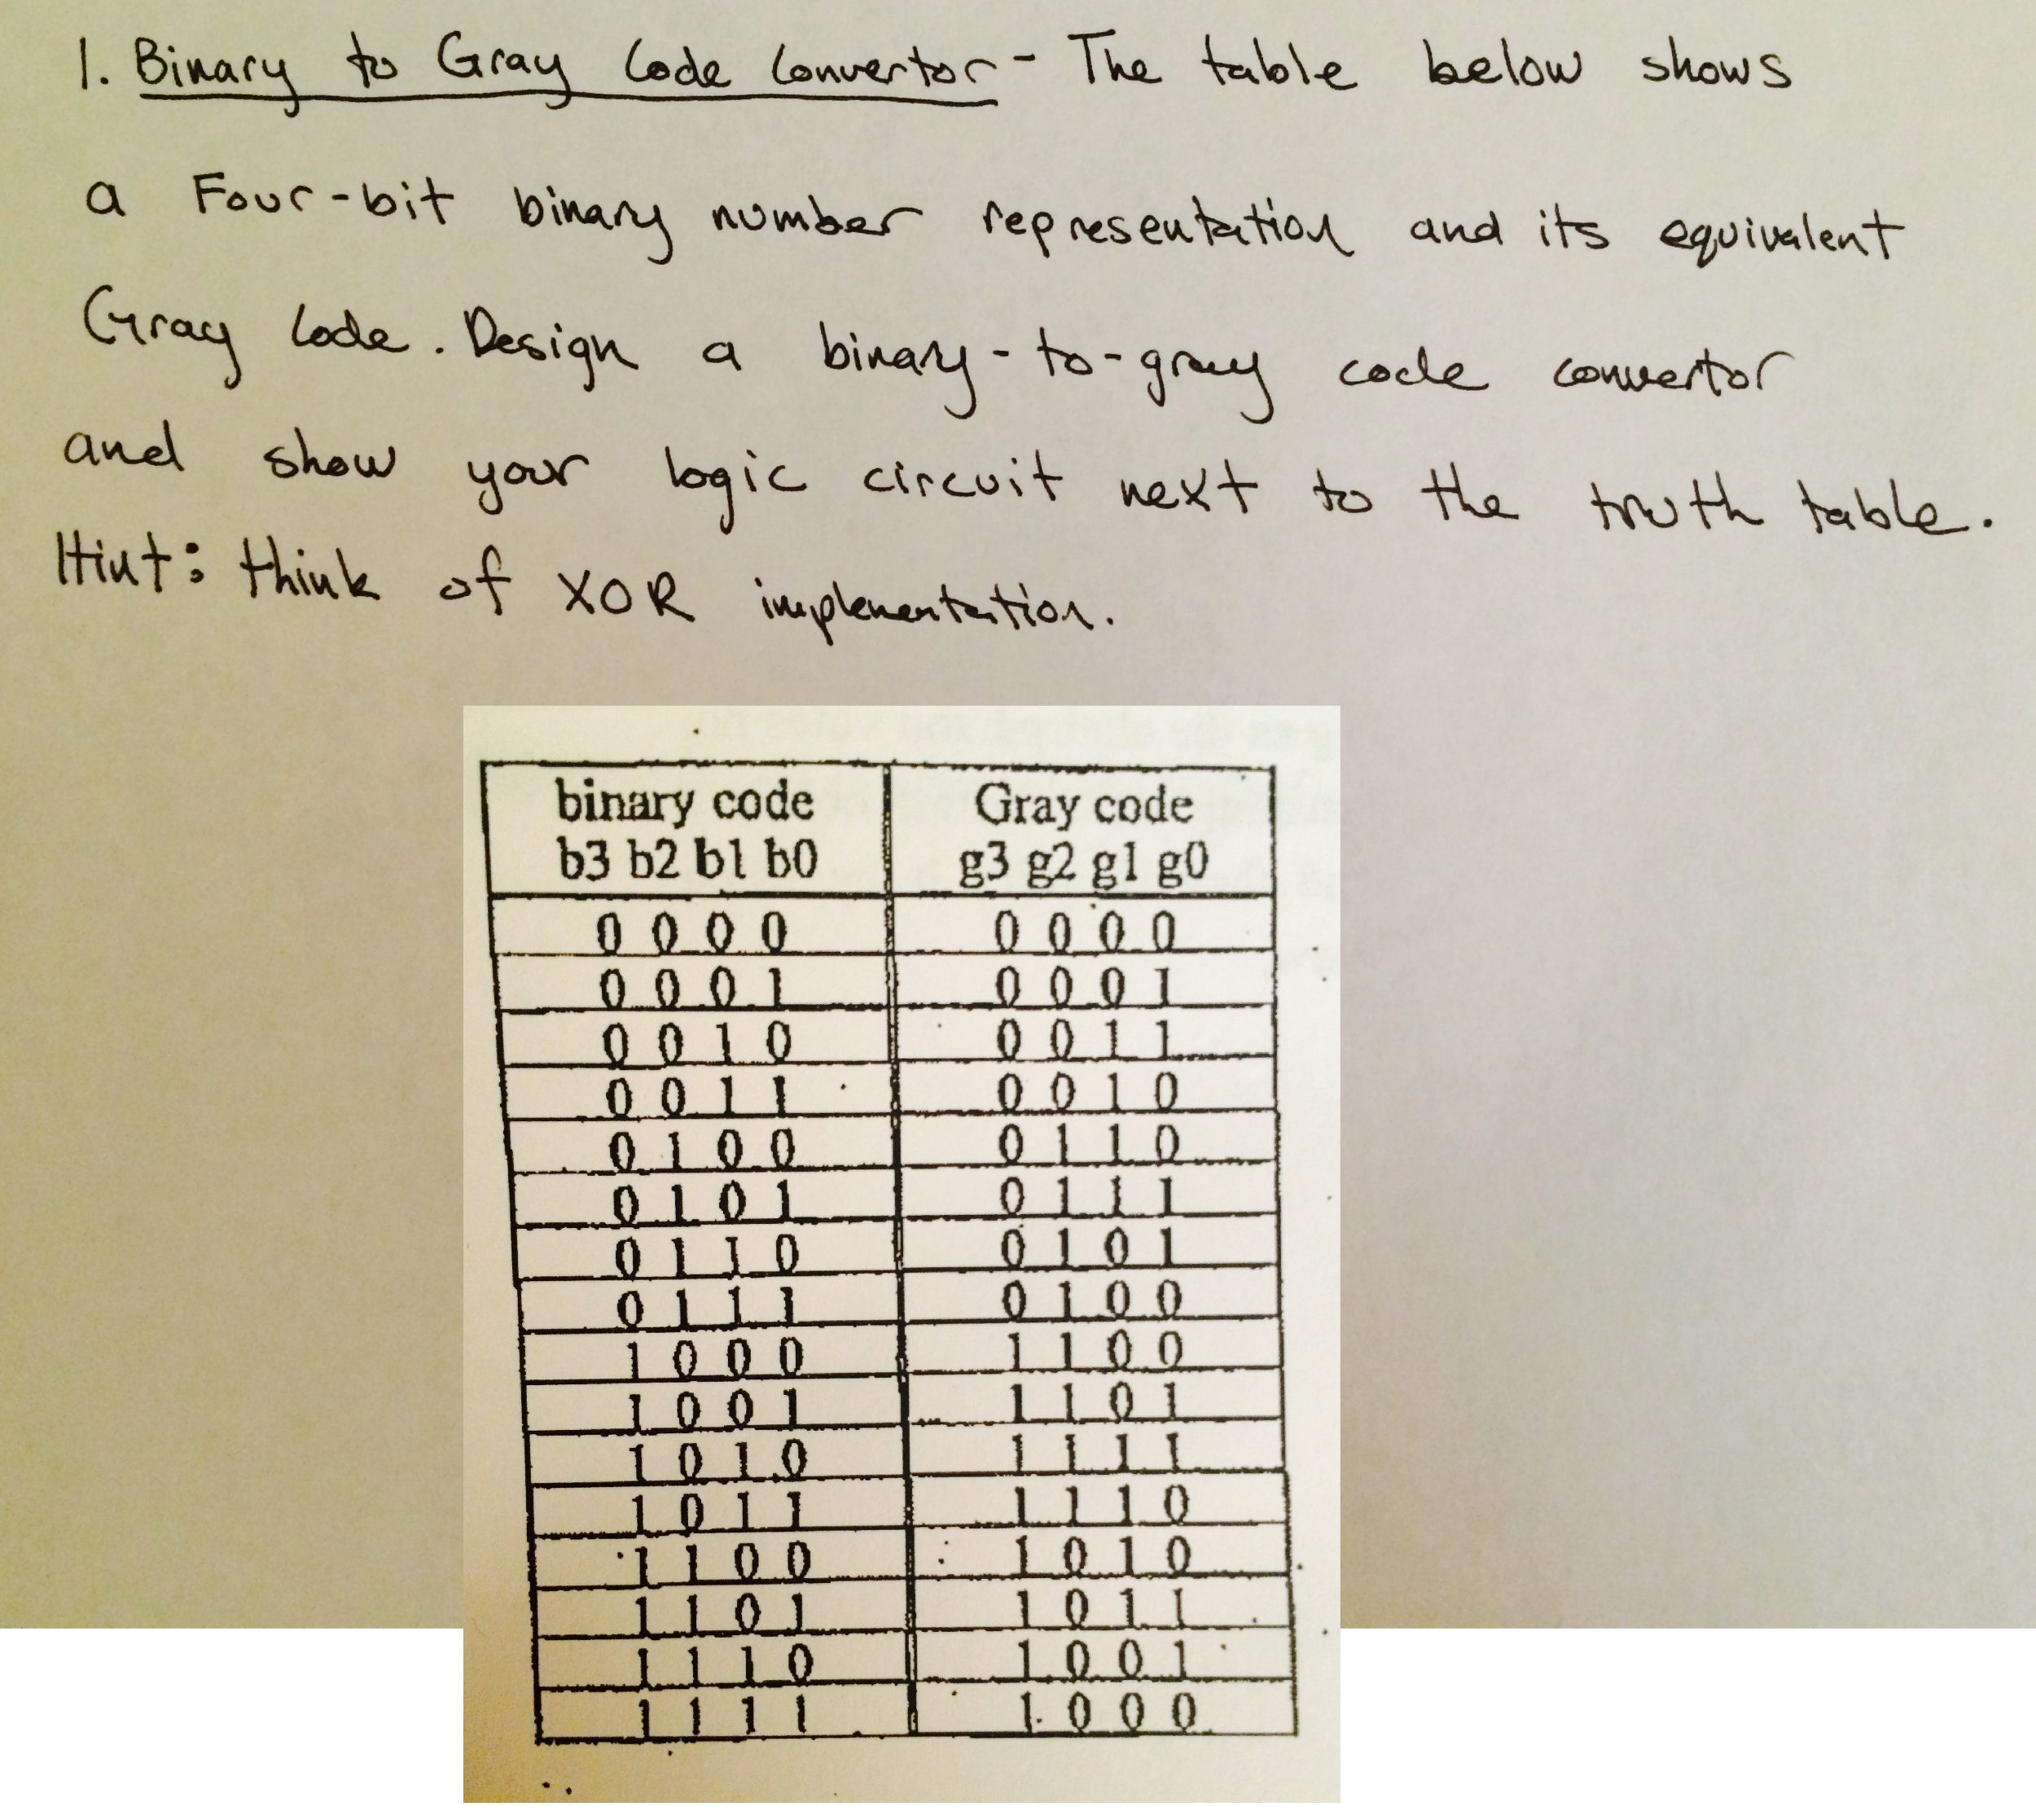 1. Binary to Gray Code Convertor - The table below shows
a Four-bit binary number representation and its equivalent
Gray Code. Design a binary-to-gray code convertor
and show your logic circuit next to the truth table.
Hint: think of XOR implementation.
binary code Gray code
b3 b2 b1 b0 g3 g2 g1 g0
0 0 0 0 0 0 0 0
0 0 0 1 0 0 0 1
0 0 1 0 0 0 1 1
0 0 1 1 0 0 1 0
0 1 0 0 0 1 1 0
0 1 0 1 0 1 1 1
0 1 1 0 0 1 0 1
0 1 1 1 0 1 0 0
1 0 0 0 1 1 0 0
1 0 0 1 1 1 0 1
1 0 1 0 1 1 1 1
1 0 1 1 1 1 1 0
1 1 0 0 1 0 1 0
1 1 0 1 1 0 1 1
1 1 1 0 1 0 0 1
1 1 1 1 1 0 0 0